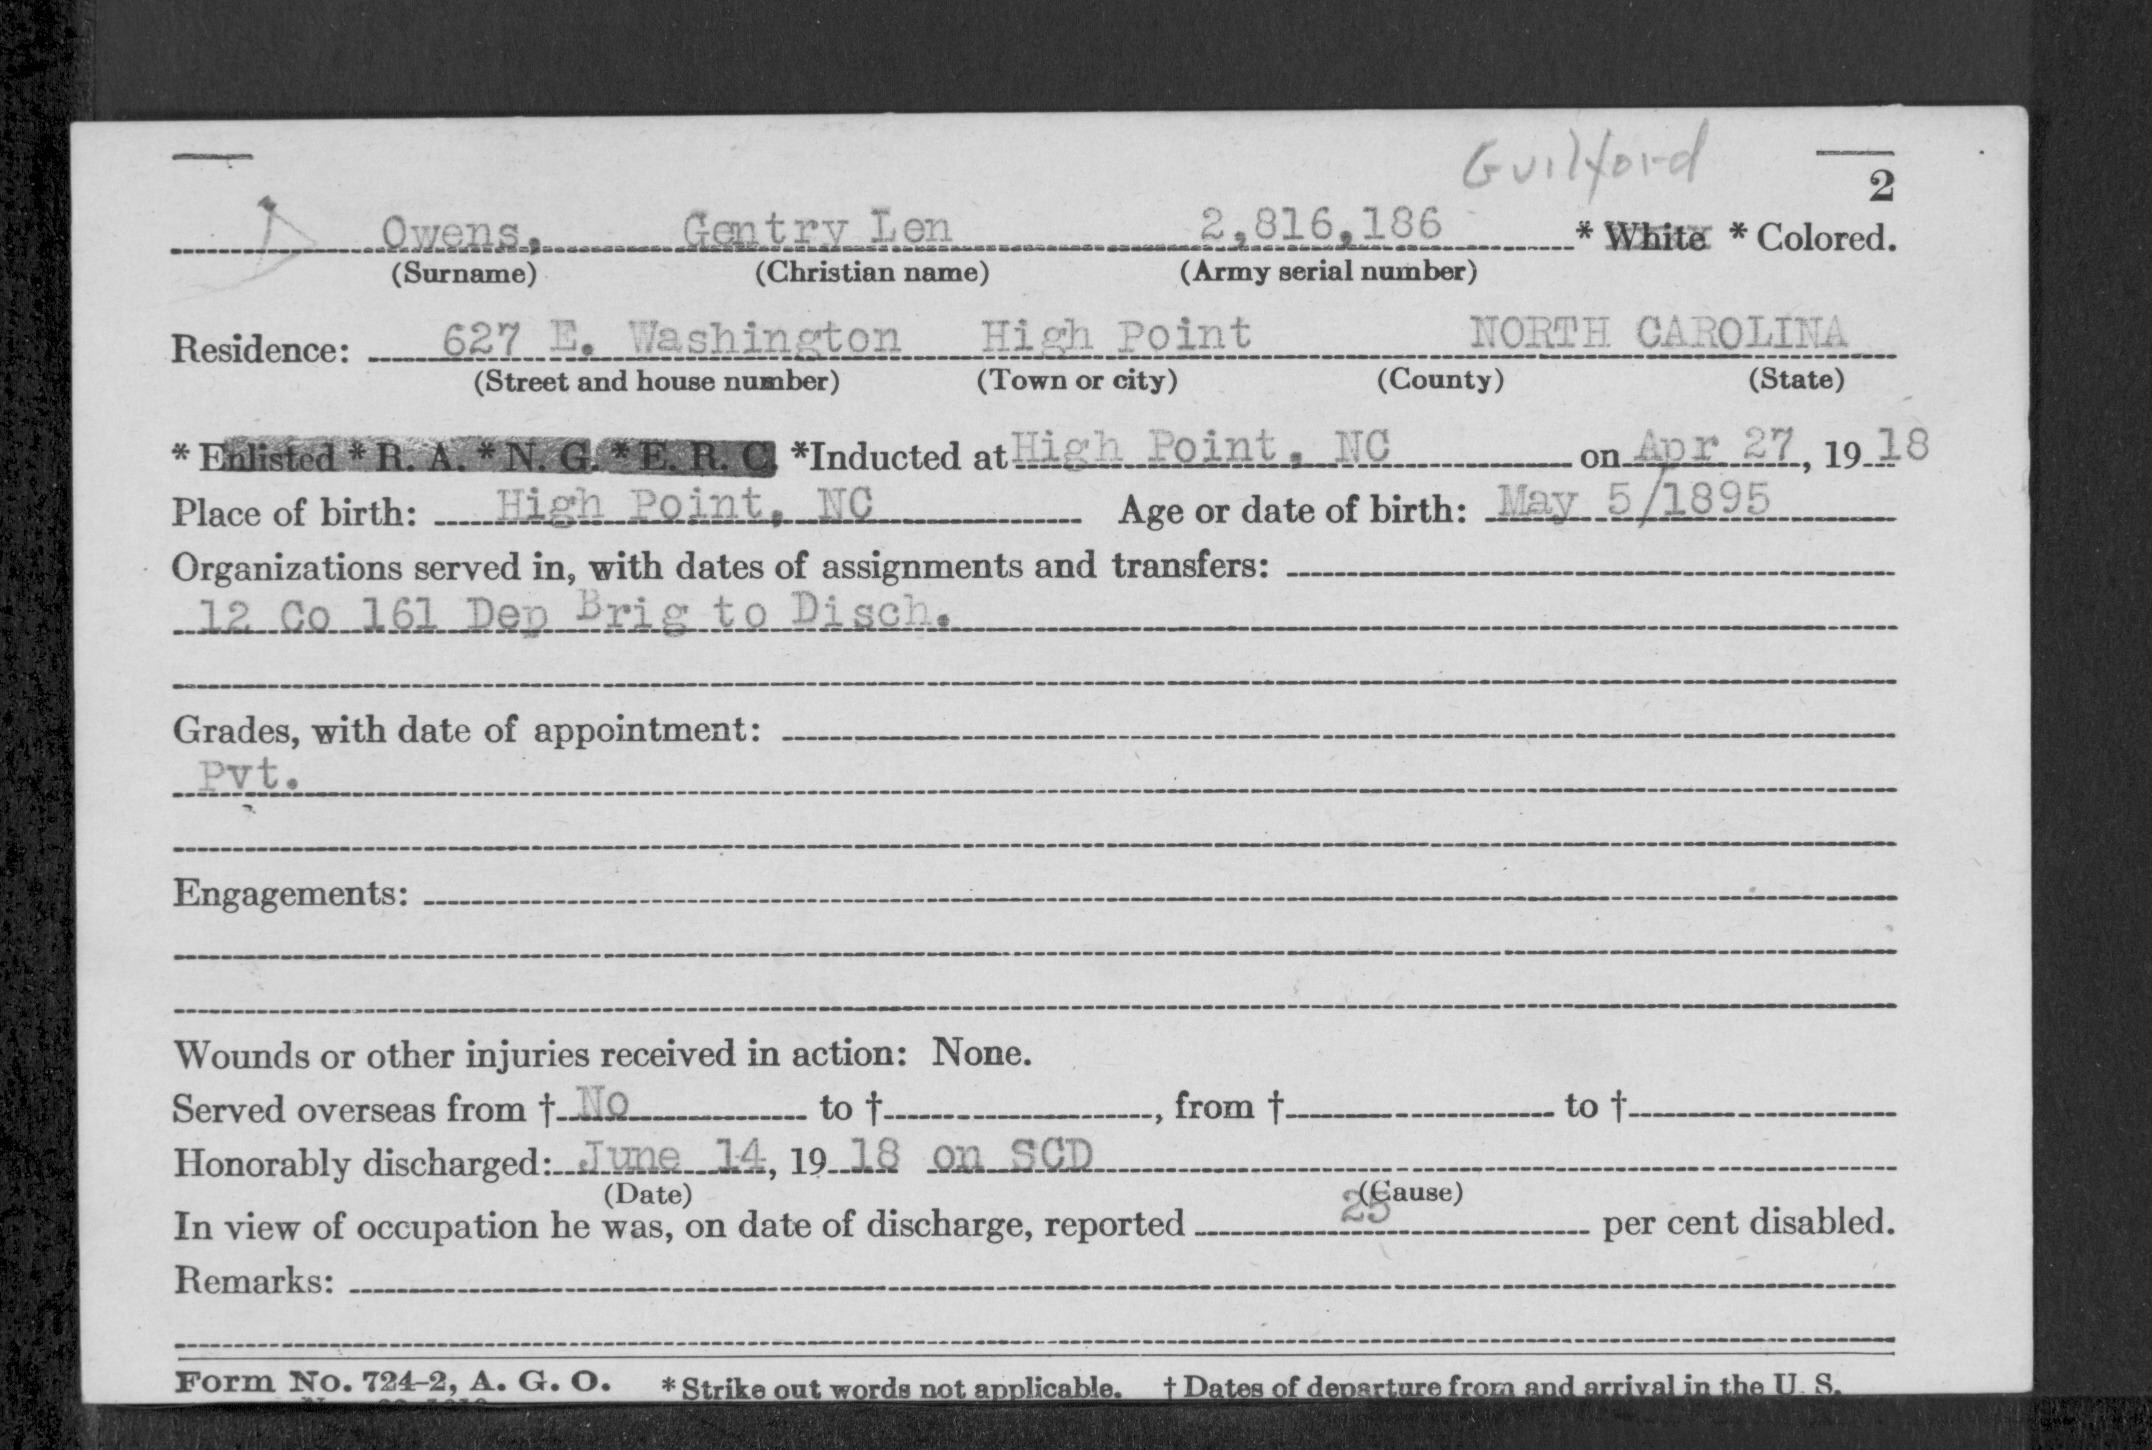 Guilford
2
Owens, Gentry Len 2,816,186 * White * Colored.
(Surname) (Christian name) (Army serial number)
Residence: 627 E. Washington High Point NORTH CAROLINA
(Street and house number) (Town or city) (County) (State)
* Enlisted * R. A. * N. G. * E. R. C. *Inducted at High Point, NC on Apr 27, 19 18
Place of birth: High Point, NC Age or date of birth: May 5/1895
Organizations served in, with dates of assignments and transfers:
12 Co 161 Dep Brig to Disch.
Grades, with date of appointment:
Pvt.
Engagements:
Wounds or other injuries received in action: None.
Served overseas from † No to †, from † to †
Honorably discharged: June 14, 19 18 on SCD
(Date) (Cause)
In view of occupation he was, on date of discharge, reported 25 per cent disabled.
Remarks:
Form No. 724-2, A. G. O. * Strike out words not applicable. † Dates of departure from and arrival in the U. S.